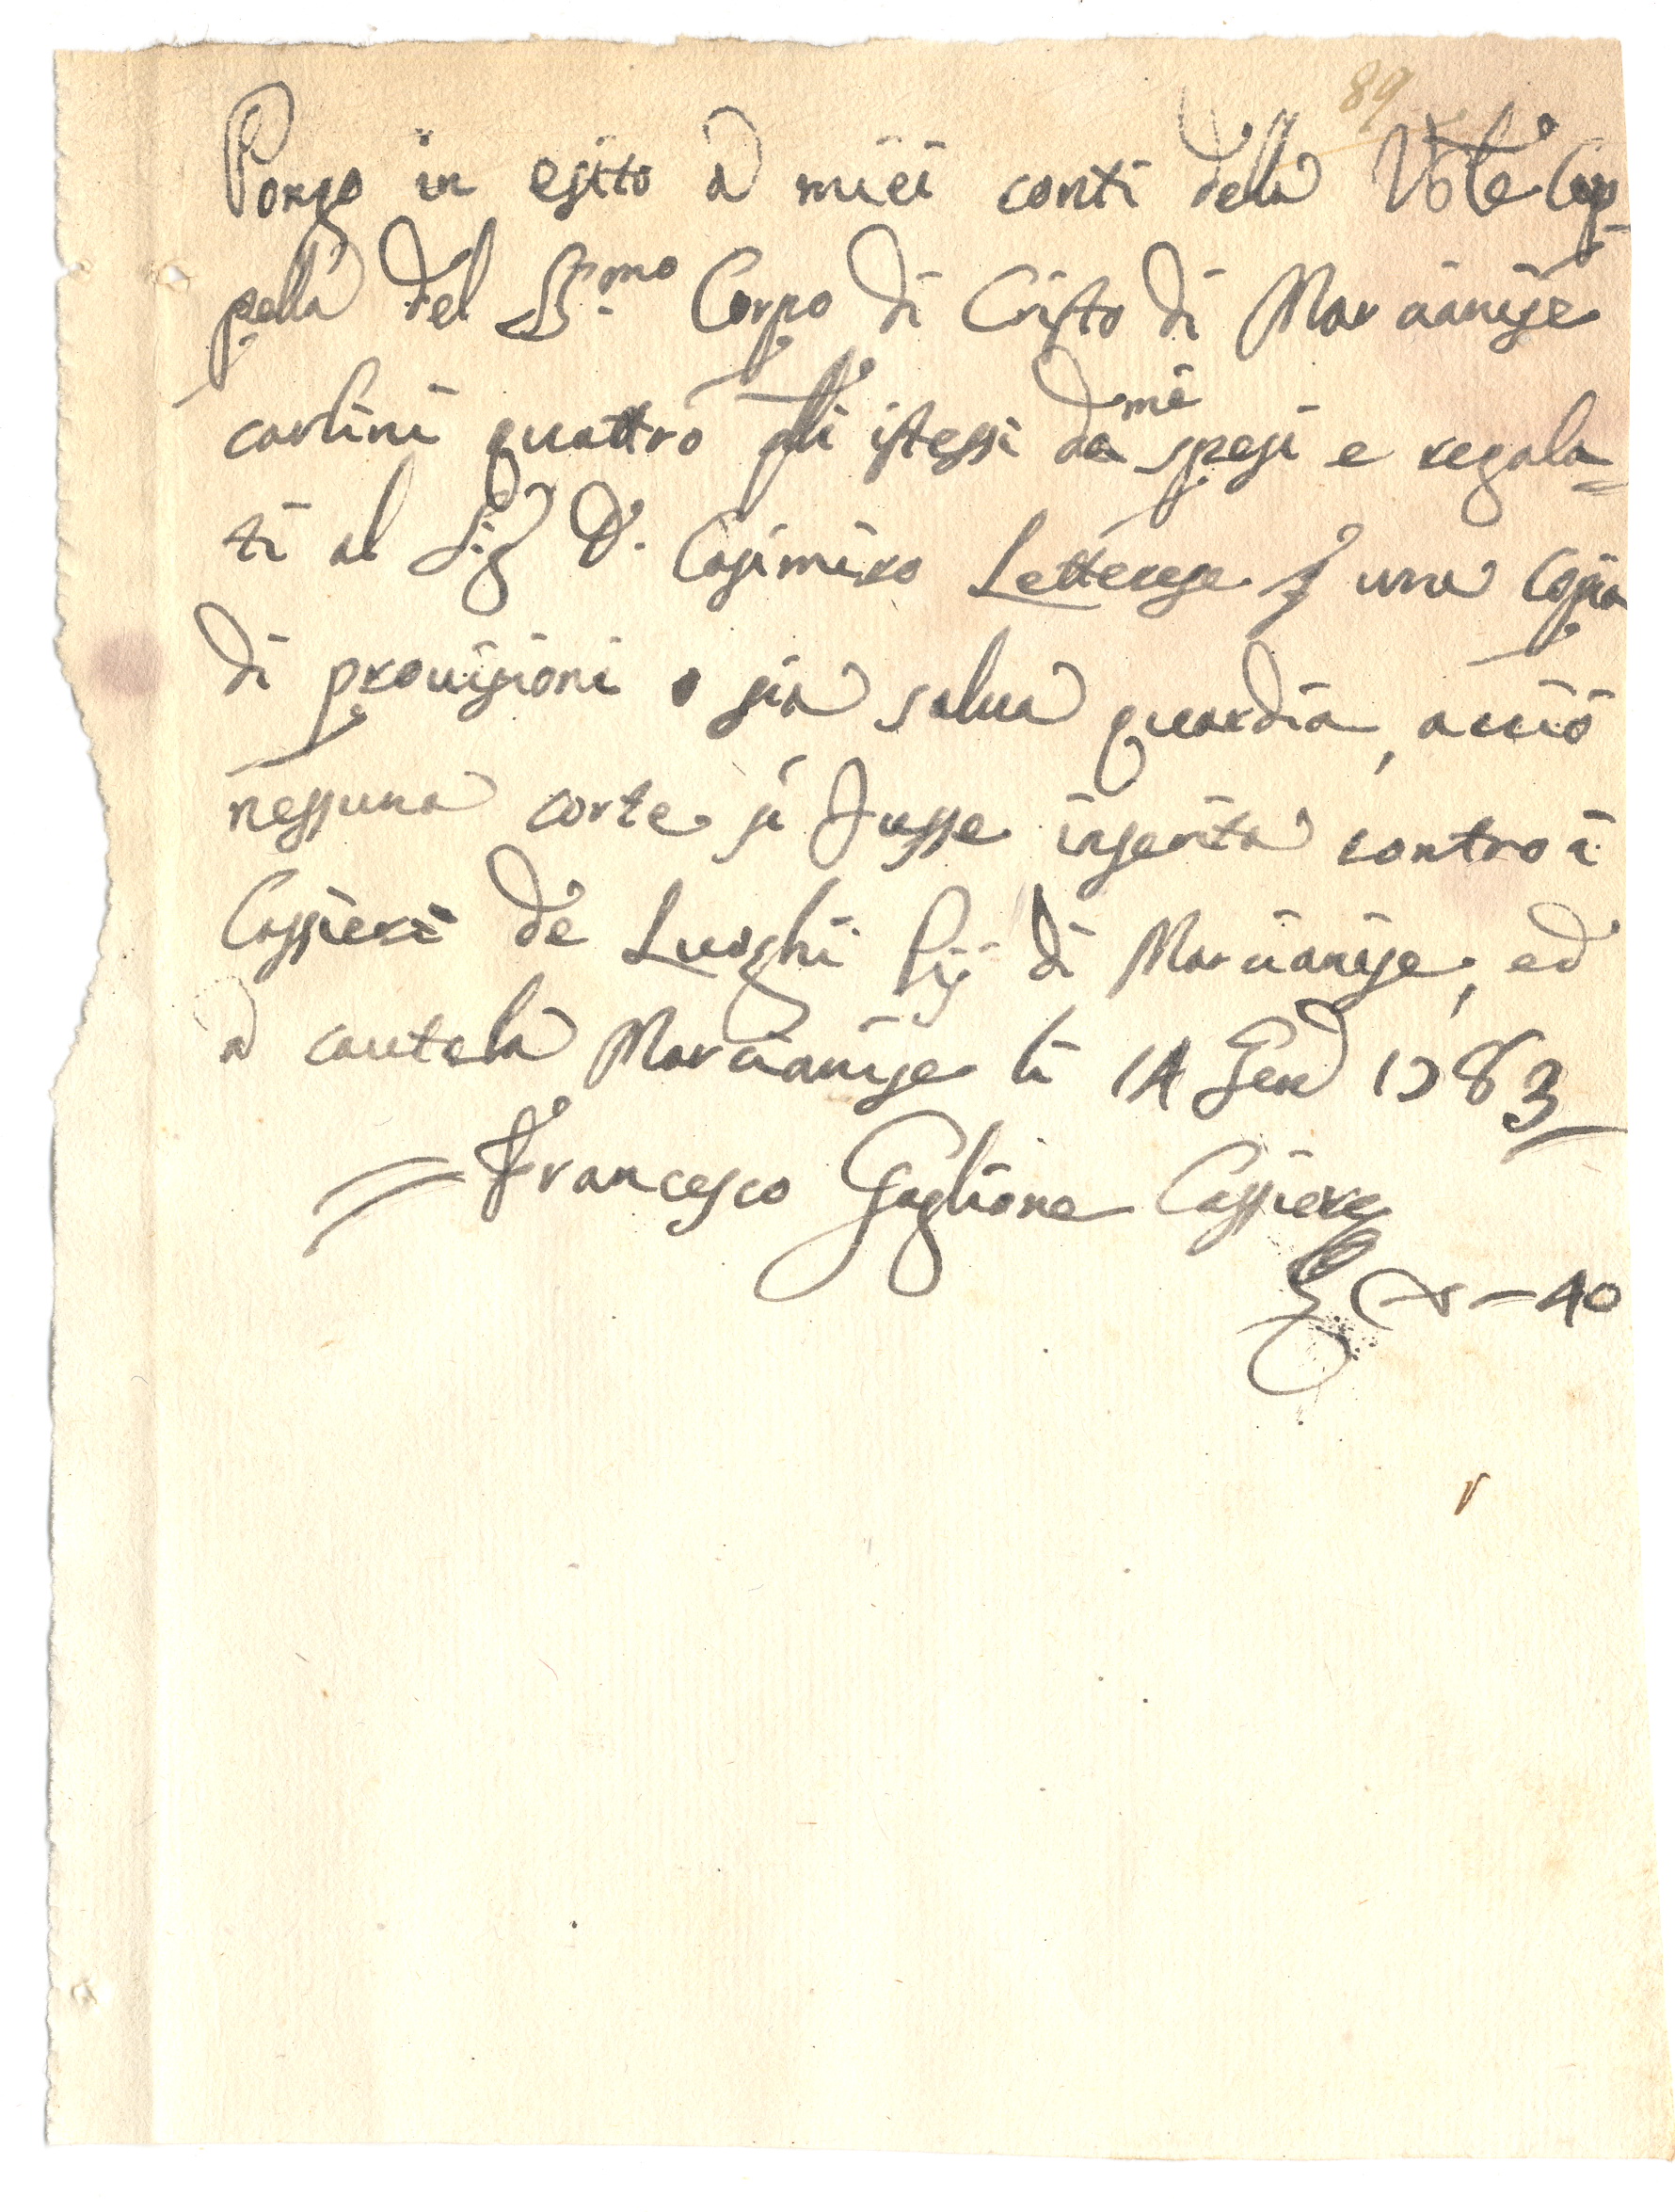 89
Pongo in esito à miei conti della Vble Cap-
pella del SS.mo Corpo di Cristo di Marcianise
carlini quattro gli istessi da me spesi e regala=
ti al Sig.r D. Casimiro Letterese p una Copia
di provisioni o sia salva guardia, acciò
nessuna corte si fusse ingerita contro i
Cassieri de Luoghi Pij di Marcianise, ed
à cautela Marcianise li 14 Gen.o 1783
= Francesco Gaglione Cassiere
– 40